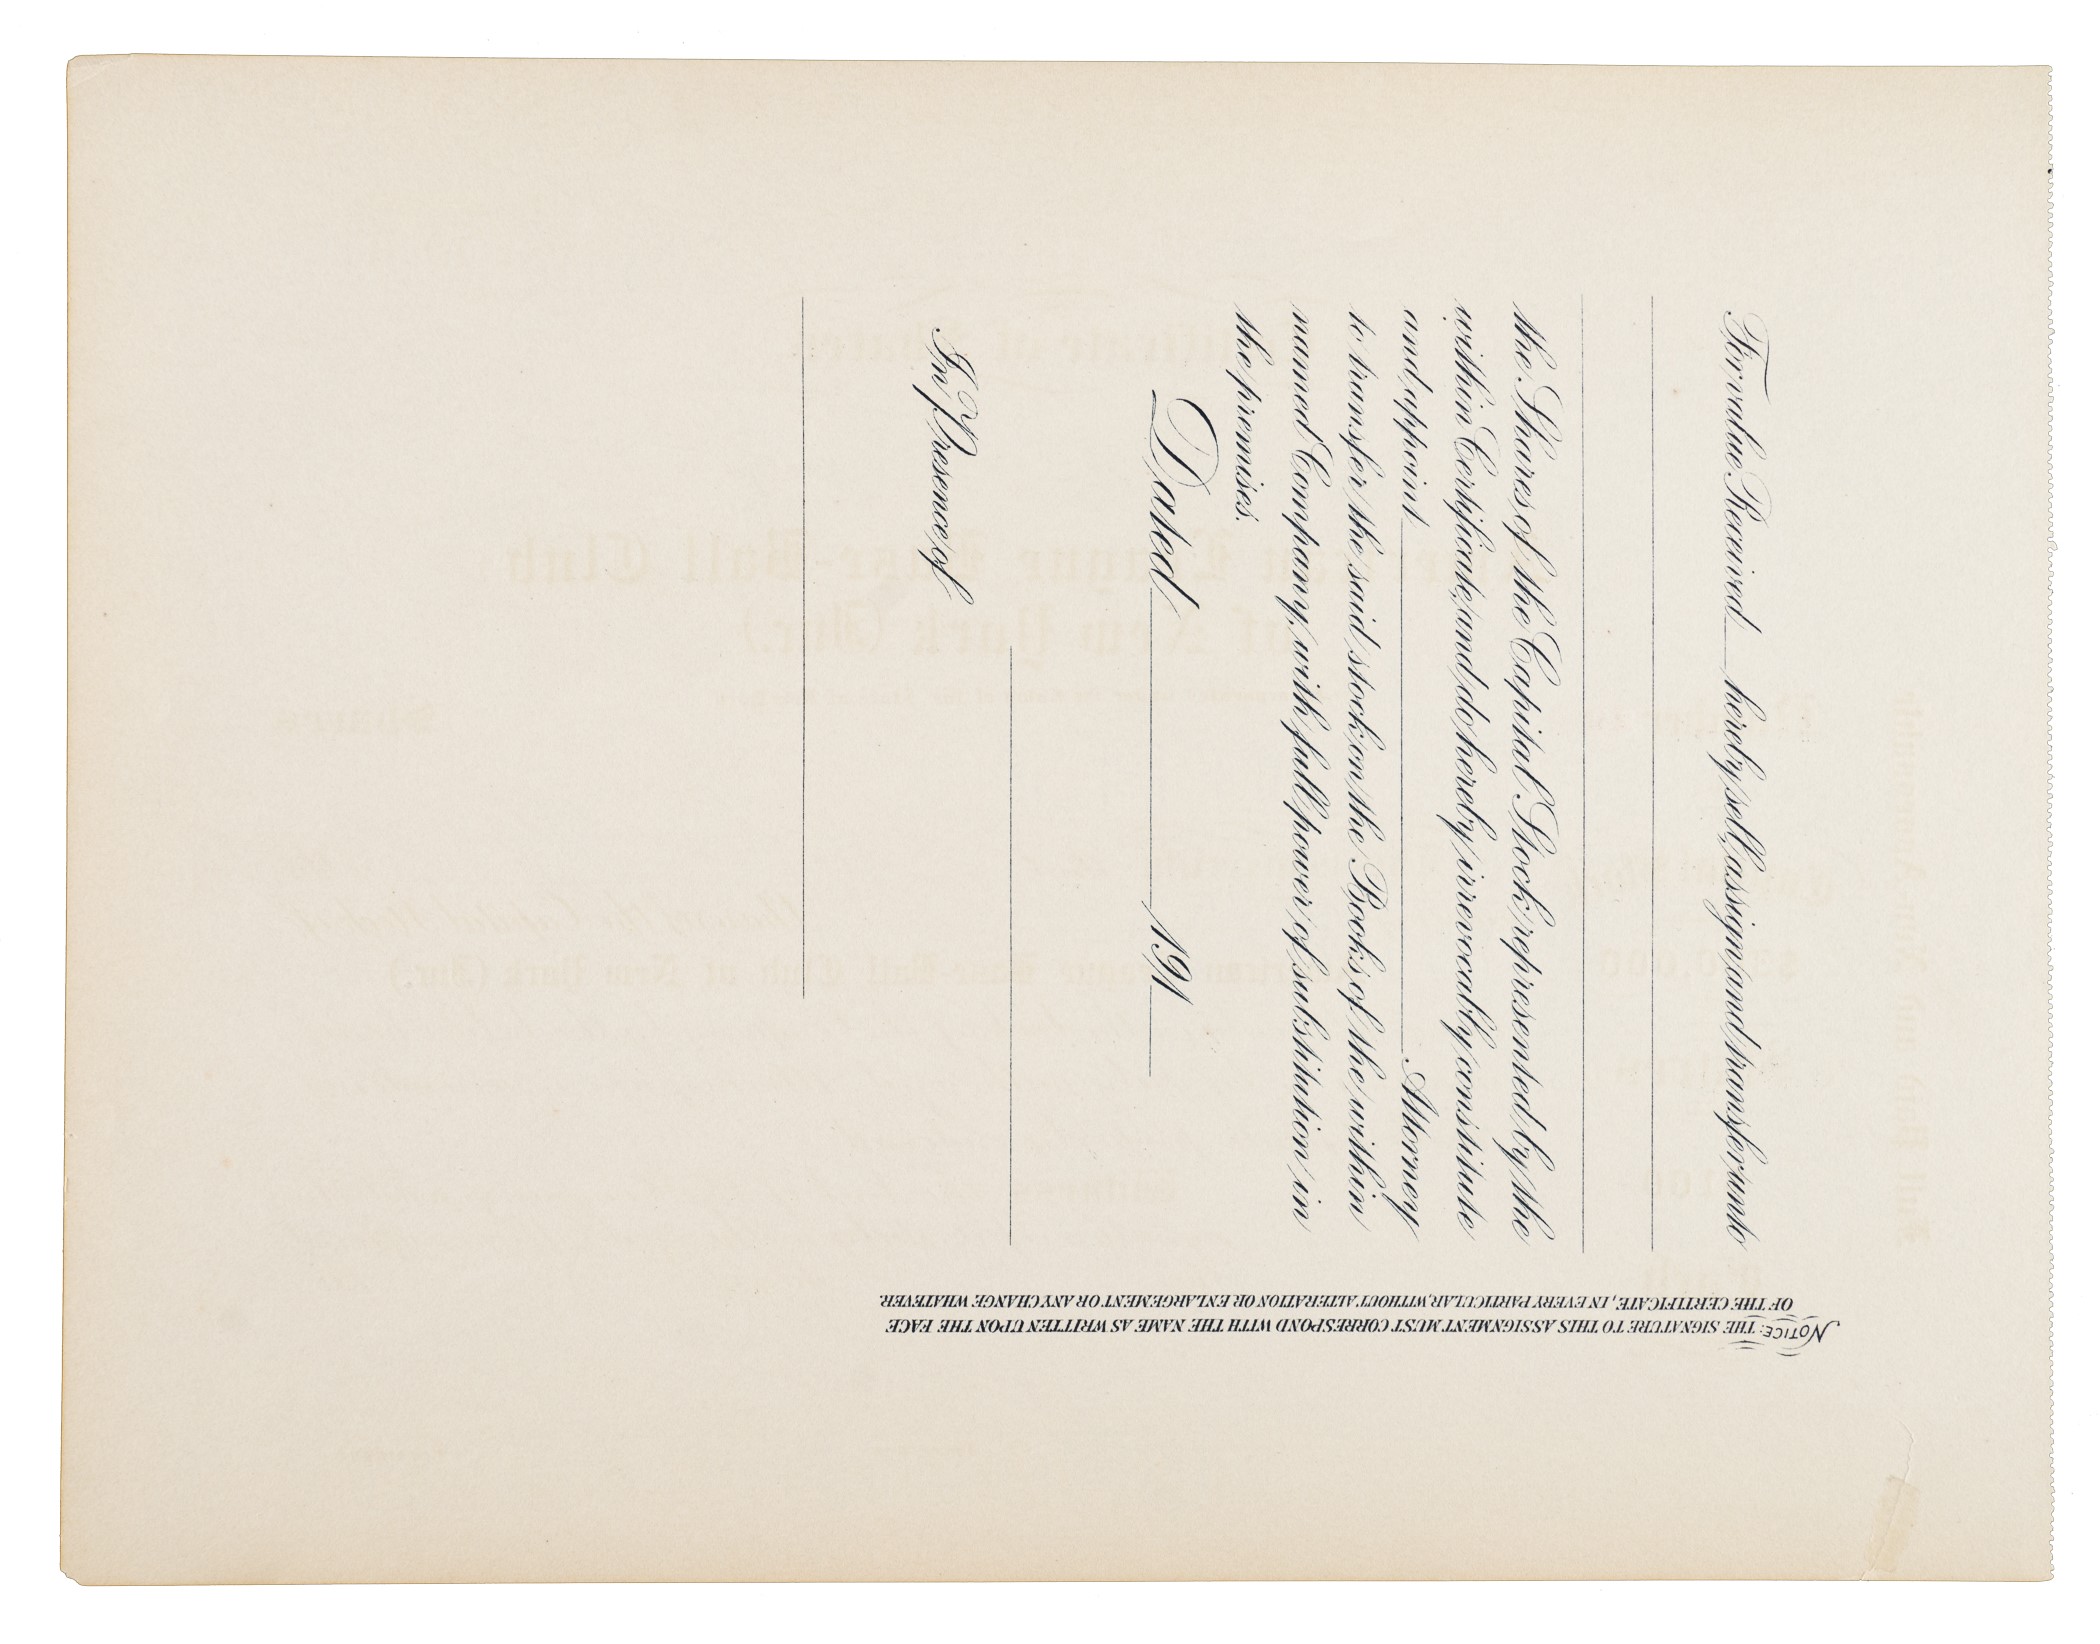 For value Received ____ hereby sell, assign and transfer unto
the Shares of the Capital Stock represented by the
within Certificate, and do hereby irrevocably constitute
and appoint ____ Attorney
to transfer the said stock on the Books of the within
named Company, with full power of substitution in
the premises.
Dated ____ 191__
In Presence of
NOTICE: THE SIGNATURE TO THIS ASSIGNMENT MUST CORRESPOND WITH THE NAME AS WRITTEN UPON THE FACE
OF THE CERTIFICATE, IN EVERY PARTICULAR, WITHOUT ALTERATION OR ENLARGEMENT OR ANY CHANGE WHATEVER.
League Base-Ball Club
of New York (Inc.)
Shares